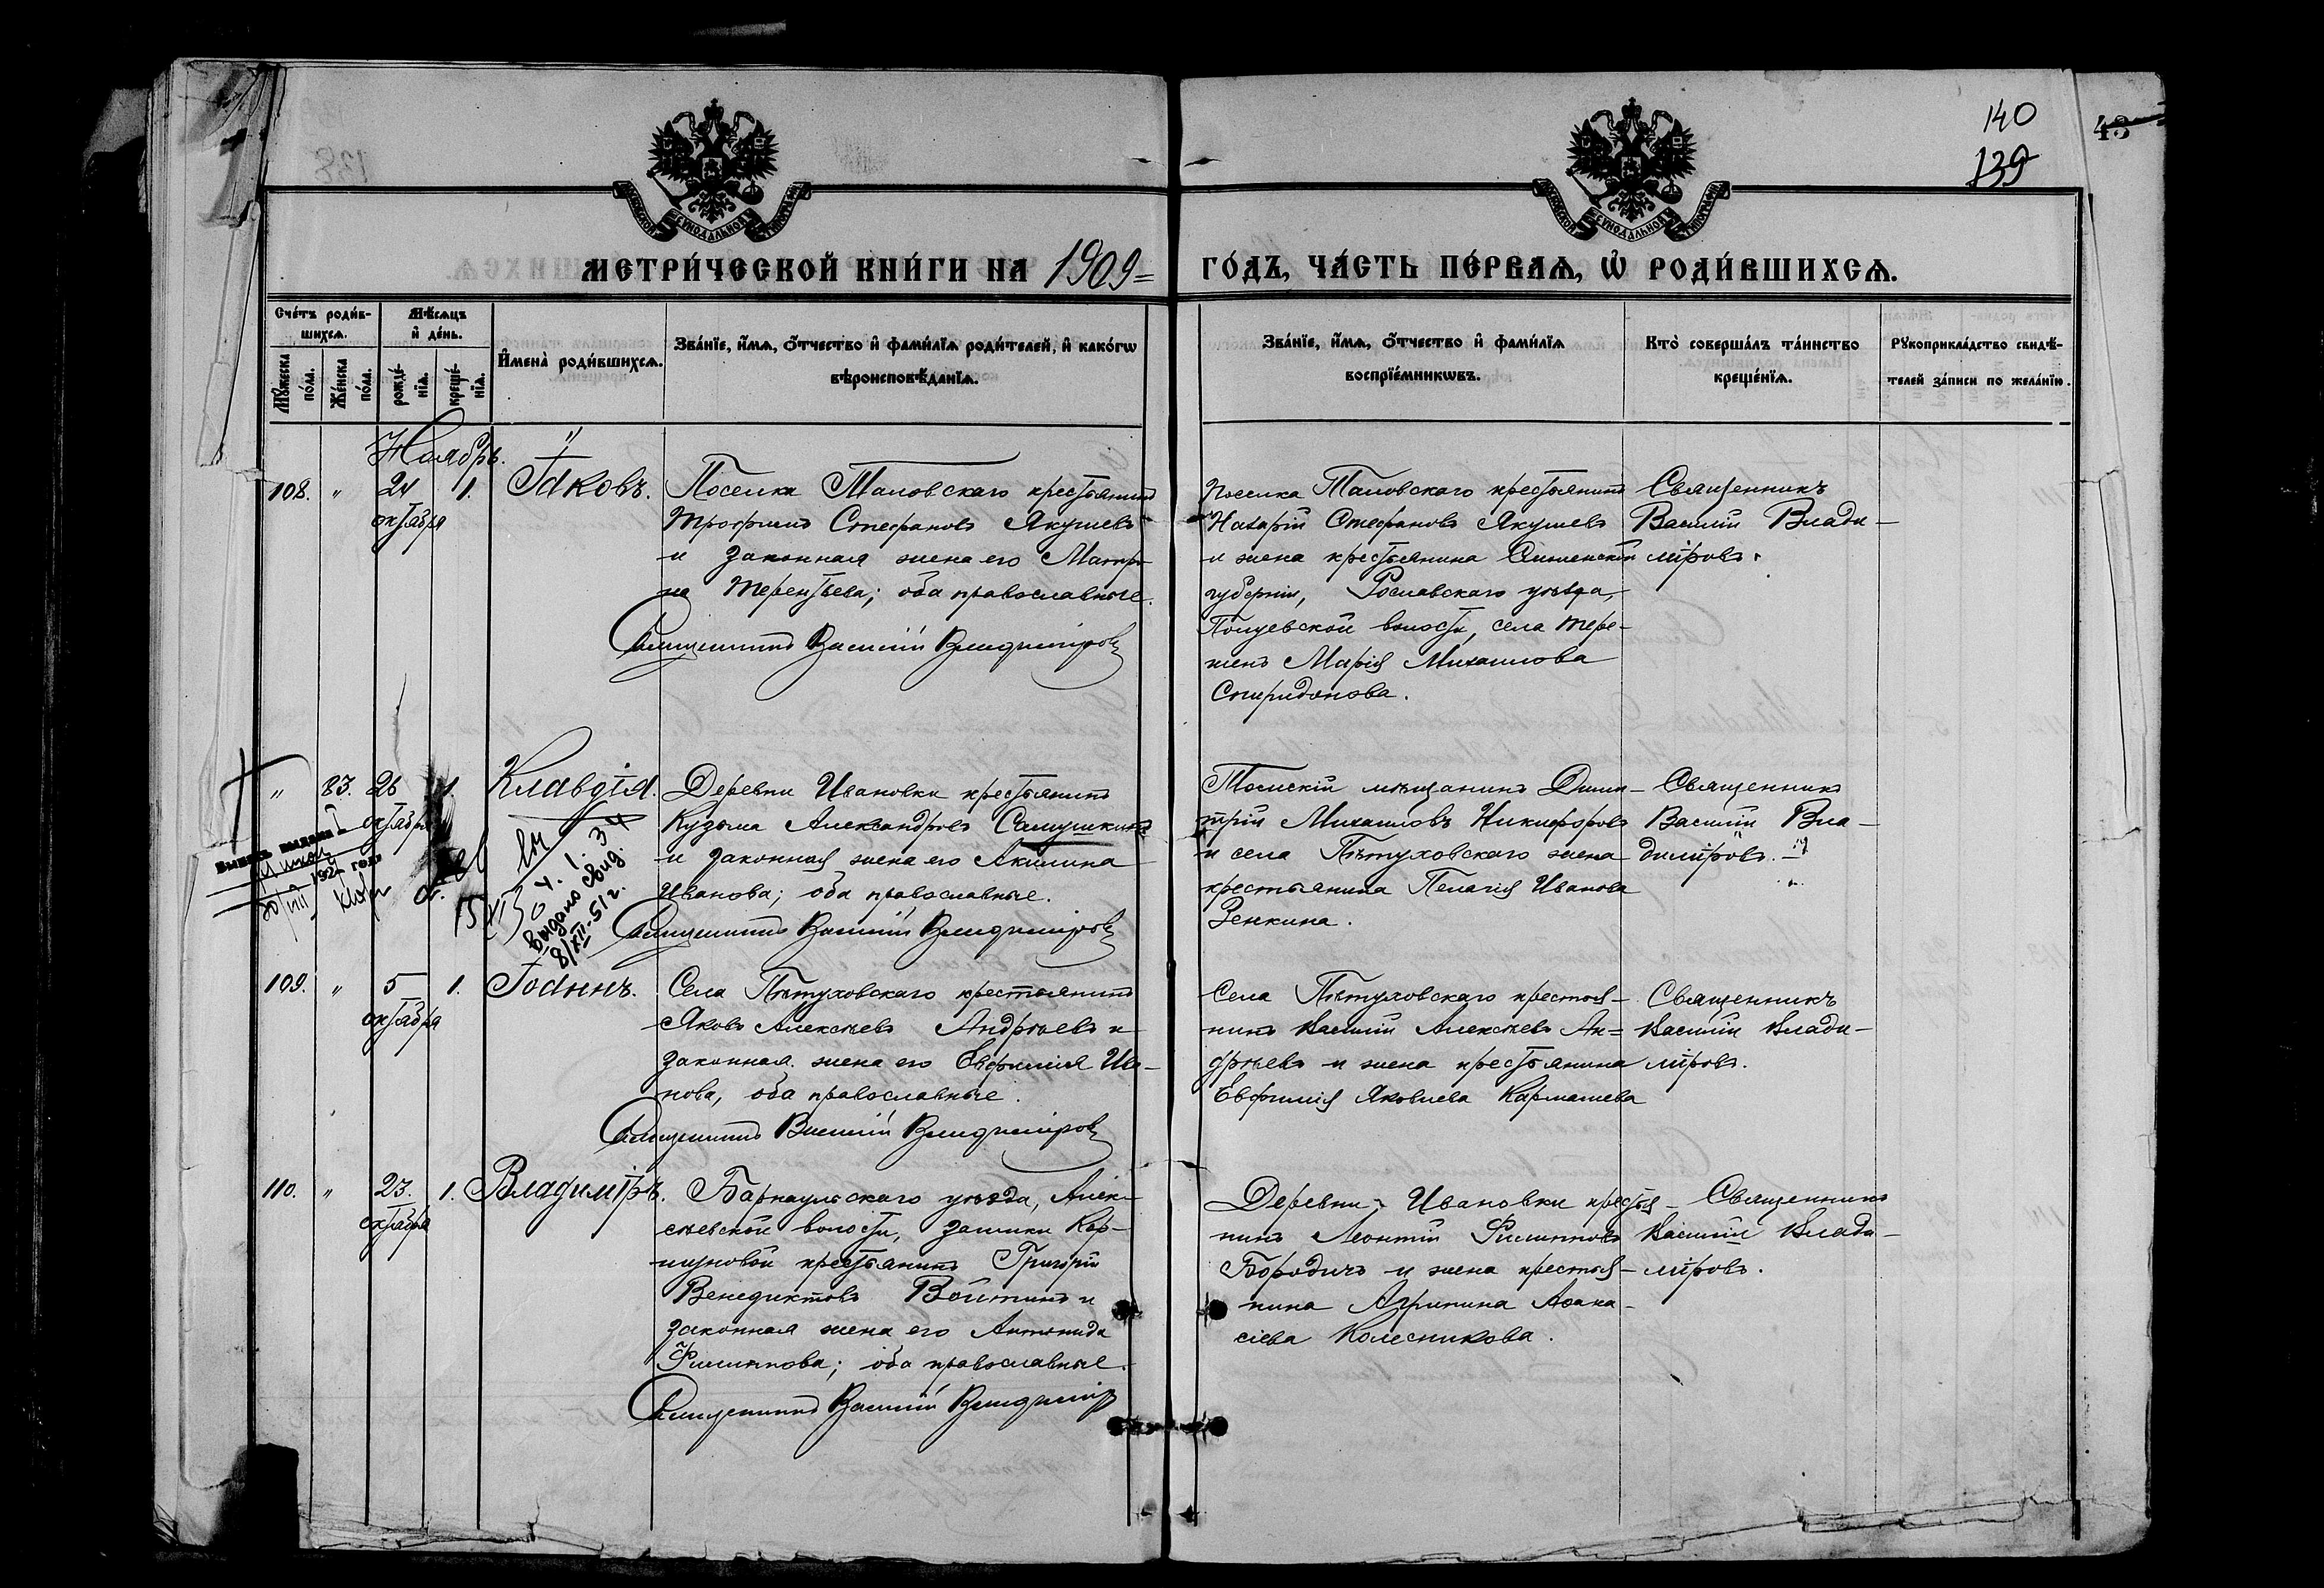 140
139
43
МЕТРИ́ЧЕСКОЙ КНИ́ГИ НА 1909 ГО́ДЪ, ЧА́СТЬ ПЕ́РВАѦ, Ѡ҆ РОДИ́ВШИХСѦ.
Сче́тъ роди́в-
шихсѧ.
Мꙋ́жеска по́ла.
Же́нска по́ла.
Мѣ́сѧцъ
и҆ де́нь.
рожде́-
нїѧ.
креще́-
нїѧ.
И҆мена̀ роди́вшихсѧ.
Зва́нїе, и҆́мѧ, ѻ҆́тчество и҆ фами́лїѧ роди́телей, и҆ како́гѡ
вѣроисповѣ́данїѧ.
Зва́нїе, и҆́мѧ, ѻ҆́тчество и҆ фами́лїѧ
воспрїе́мникѡвъ.
Кто̀ соверша́лъ та́инство
креще́нїѧ.
Рꙋкоприкла́дство свидѣ́-
телей за́писи по жела́нїю.
Ноябрь.
108. " 24 октября 1. Іаковъ.
Поселка Таловскаго крестьянинъ
Трофимъ Стефановъ Якушевъ
и законная жена его Матро-
на Терентьева; оба православные.
Священникъ Василій Владиміровъ
Поселка Таловскаго крестьянинъ
Назарій Стефановъ Якушевъ
и жена крестьянина Смоленской
губерніи, Рославскаго уѣзда,
волости, села
Марія Михаилова
Спиридонова.
Священникъ
Василій Влади-
міровъ.
" 83. 26 октября 1. Клавдія.
Деревни Ивановки крестьянинъ
Кузьма Александровъ Самушкинъ
и законная жена его Акилина
Иванова; оба православные.
Священникъ Василій Владиміровъ
выдано свид.
8/XII-51 г.
Томскій мѣщанинъ Дими-
трій Михаиловъ Никифоровъ
и села Пѣтуховскаго жена
крестьянина Пелагія Иванова
Зенкина.
Священникъ
Василій Вла-
диміровъ.
109. " 5 октября 1. Іоаннъ.
Села Пѣтуховскаго крестьянинъ
Яковъ Алексѣевъ Андреевъ и
законная жена его Евфимія Ива-
нова, оба православные.
Священникъ Василій Владиміровъ
Села Пѣтуховскаго крестья-
нинъ Василій Алексѣевъ Ан-
дреевъ и жена крестьянина
Евфимія Яковлева Кармашева
Священникъ
Василій Влади-
міровъ.
110. " 23. октября 1. Владиміръ.
Барнаульскаго уѣзда, Алек-
сѣевской волости, заимки Кор-
ниловой крестьянинъ Григорій
Венедиктовъ Войтинъ и
законная жена его Антонида
Филиппова; оба православные.
Священникъ Василій Владиміръ
Деревни Ивановки крестья-
нинъ Леонтій Филипповъ
Бородичъ и жена крестья-
нина Агрипина Афана-
сіева Колесникова.
Священникъ
Василій Влади-
міровъ.